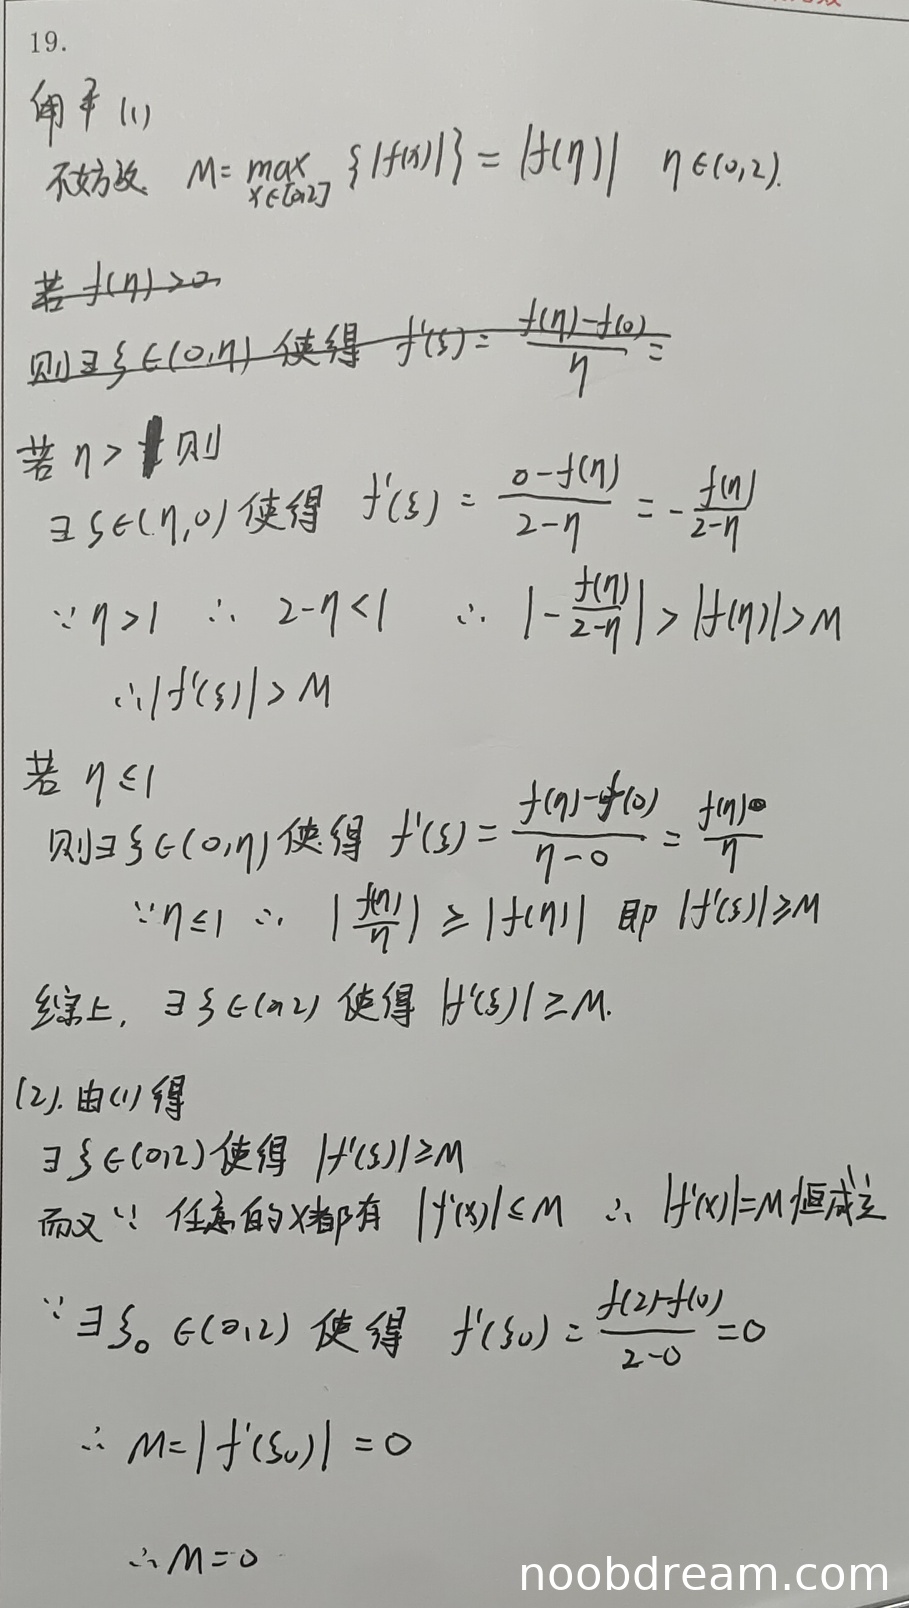 19.
解 (1)
不妨设 M=max x∈[0,2] {|f(x)|} = |f(η)| η∈(0,2).
若 f(η)>0
则∃ξ∈(0,η) 使得 f'(ξ)= (f(η)-f(0))/η =
若 η> 1 则
∃ξ∈(η,0) 使得 f'(ξ) = (0-f(η))/(2-η) = -f(η)/(2-η)
∵ η>1 ∴ 2-η<1 ∴ |-f(η)/(2-η)| > |f(η)| > M
∴|f'(ξ)| > M
若 η≤1
则∃ξ∈(0,η) 使得 f'(ξ) = (f(η)-f(0))/(η-0) = f(η)/η
∵η≤1 ∴ |f(η)/η| ≥ |f(η)| 即 |f'(ξ)|≥M
综上, ∃ξ∈(0,2) 使得 |f'(ξ)|≥M.
(2). 由(1)得
∃ξ∈(0,2) 使得 |f'(ξ)|≥M
而又∵ 任意的x都有 |f'(x)|≤M ∴ |f'(x)|=M 恒成立
∵∃ξ₀∈(0,2) 使得 f'(ξ₀) = (f(2)-f(0))/(2-0) =0
∴ M=|f'(ξ₀)| =0
∴M=0
noobdream.com